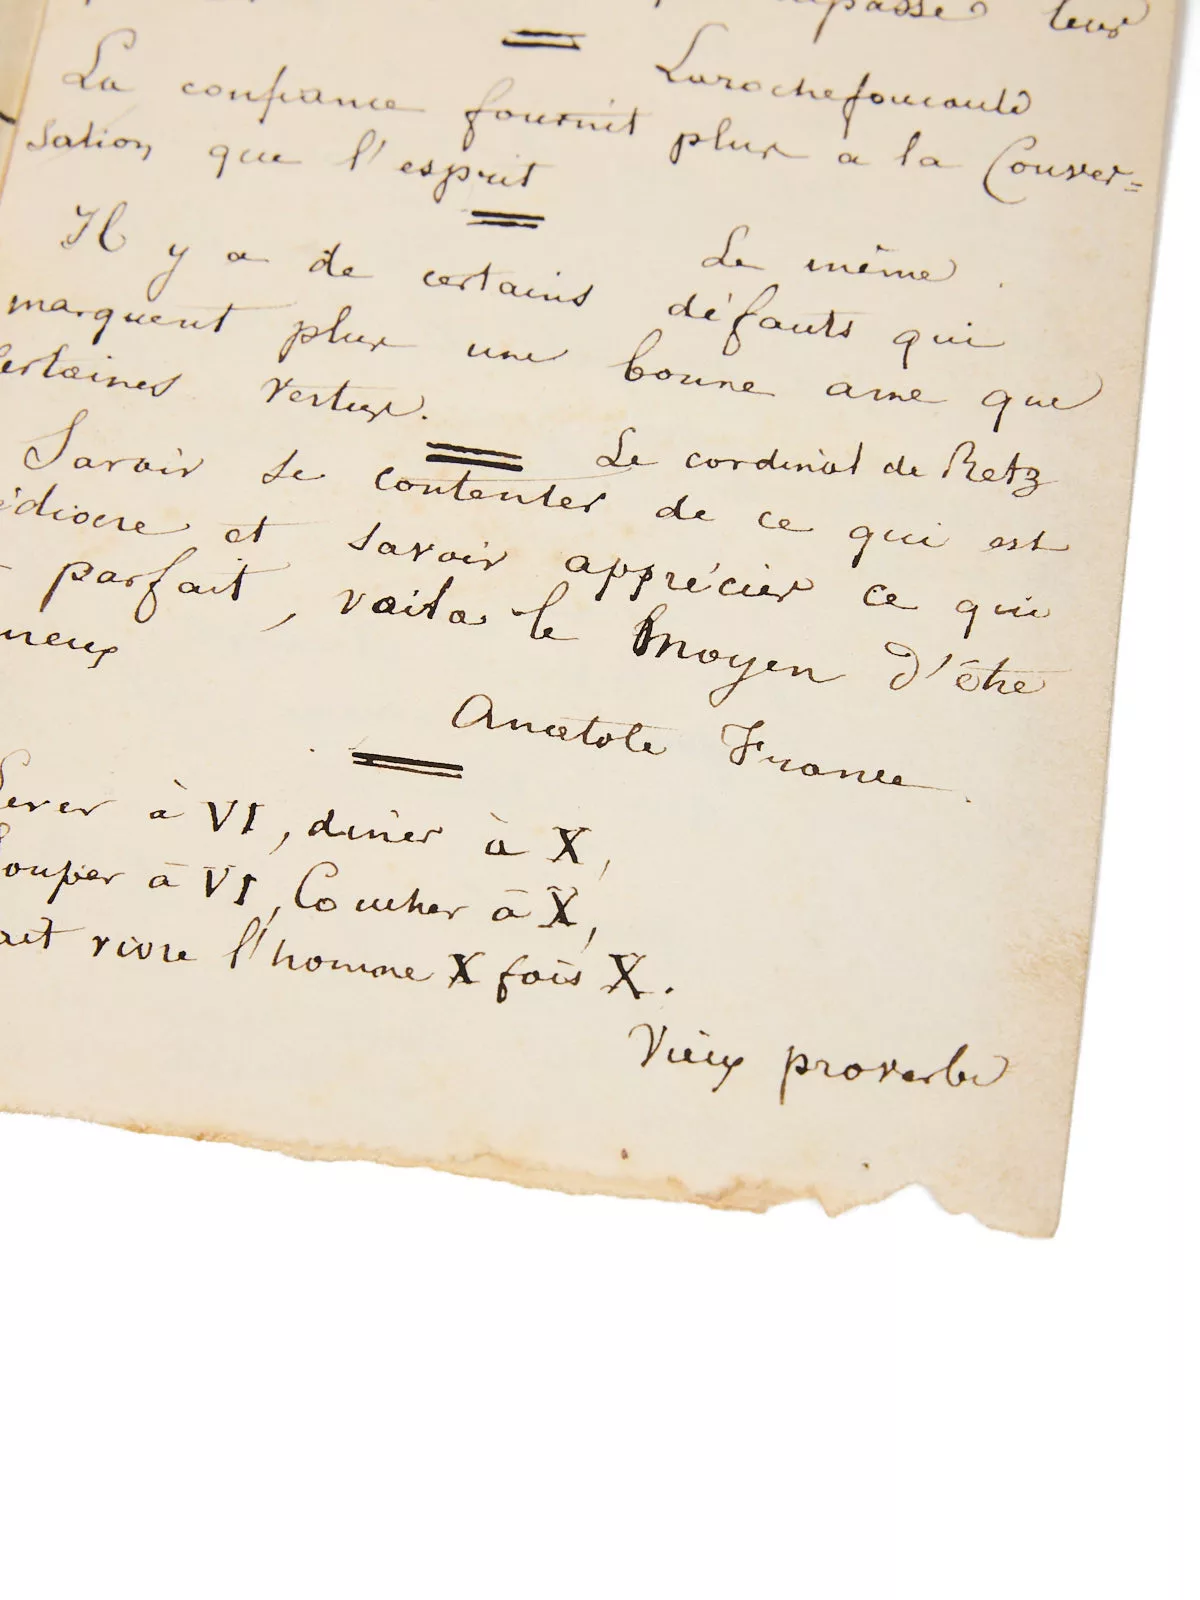 leur
Larochefoucauld
La confiance fournit plus a la Conver=
sation que l'esprit
Le même.
Il y a de certains défauts qui
marquent plus une bonne ame que
certaines vertux.
Le cardinal de Retz
Savoir se contenter de ce qui est
édiocre et savoir apprécier ce qui
parfait, voila le moyen d'être
neux
Anatole France.
Lever à VI, diner à X,
Souper à VI, Coucher à X,
ait vivre l'homme X fois X.
Vieux proverbe